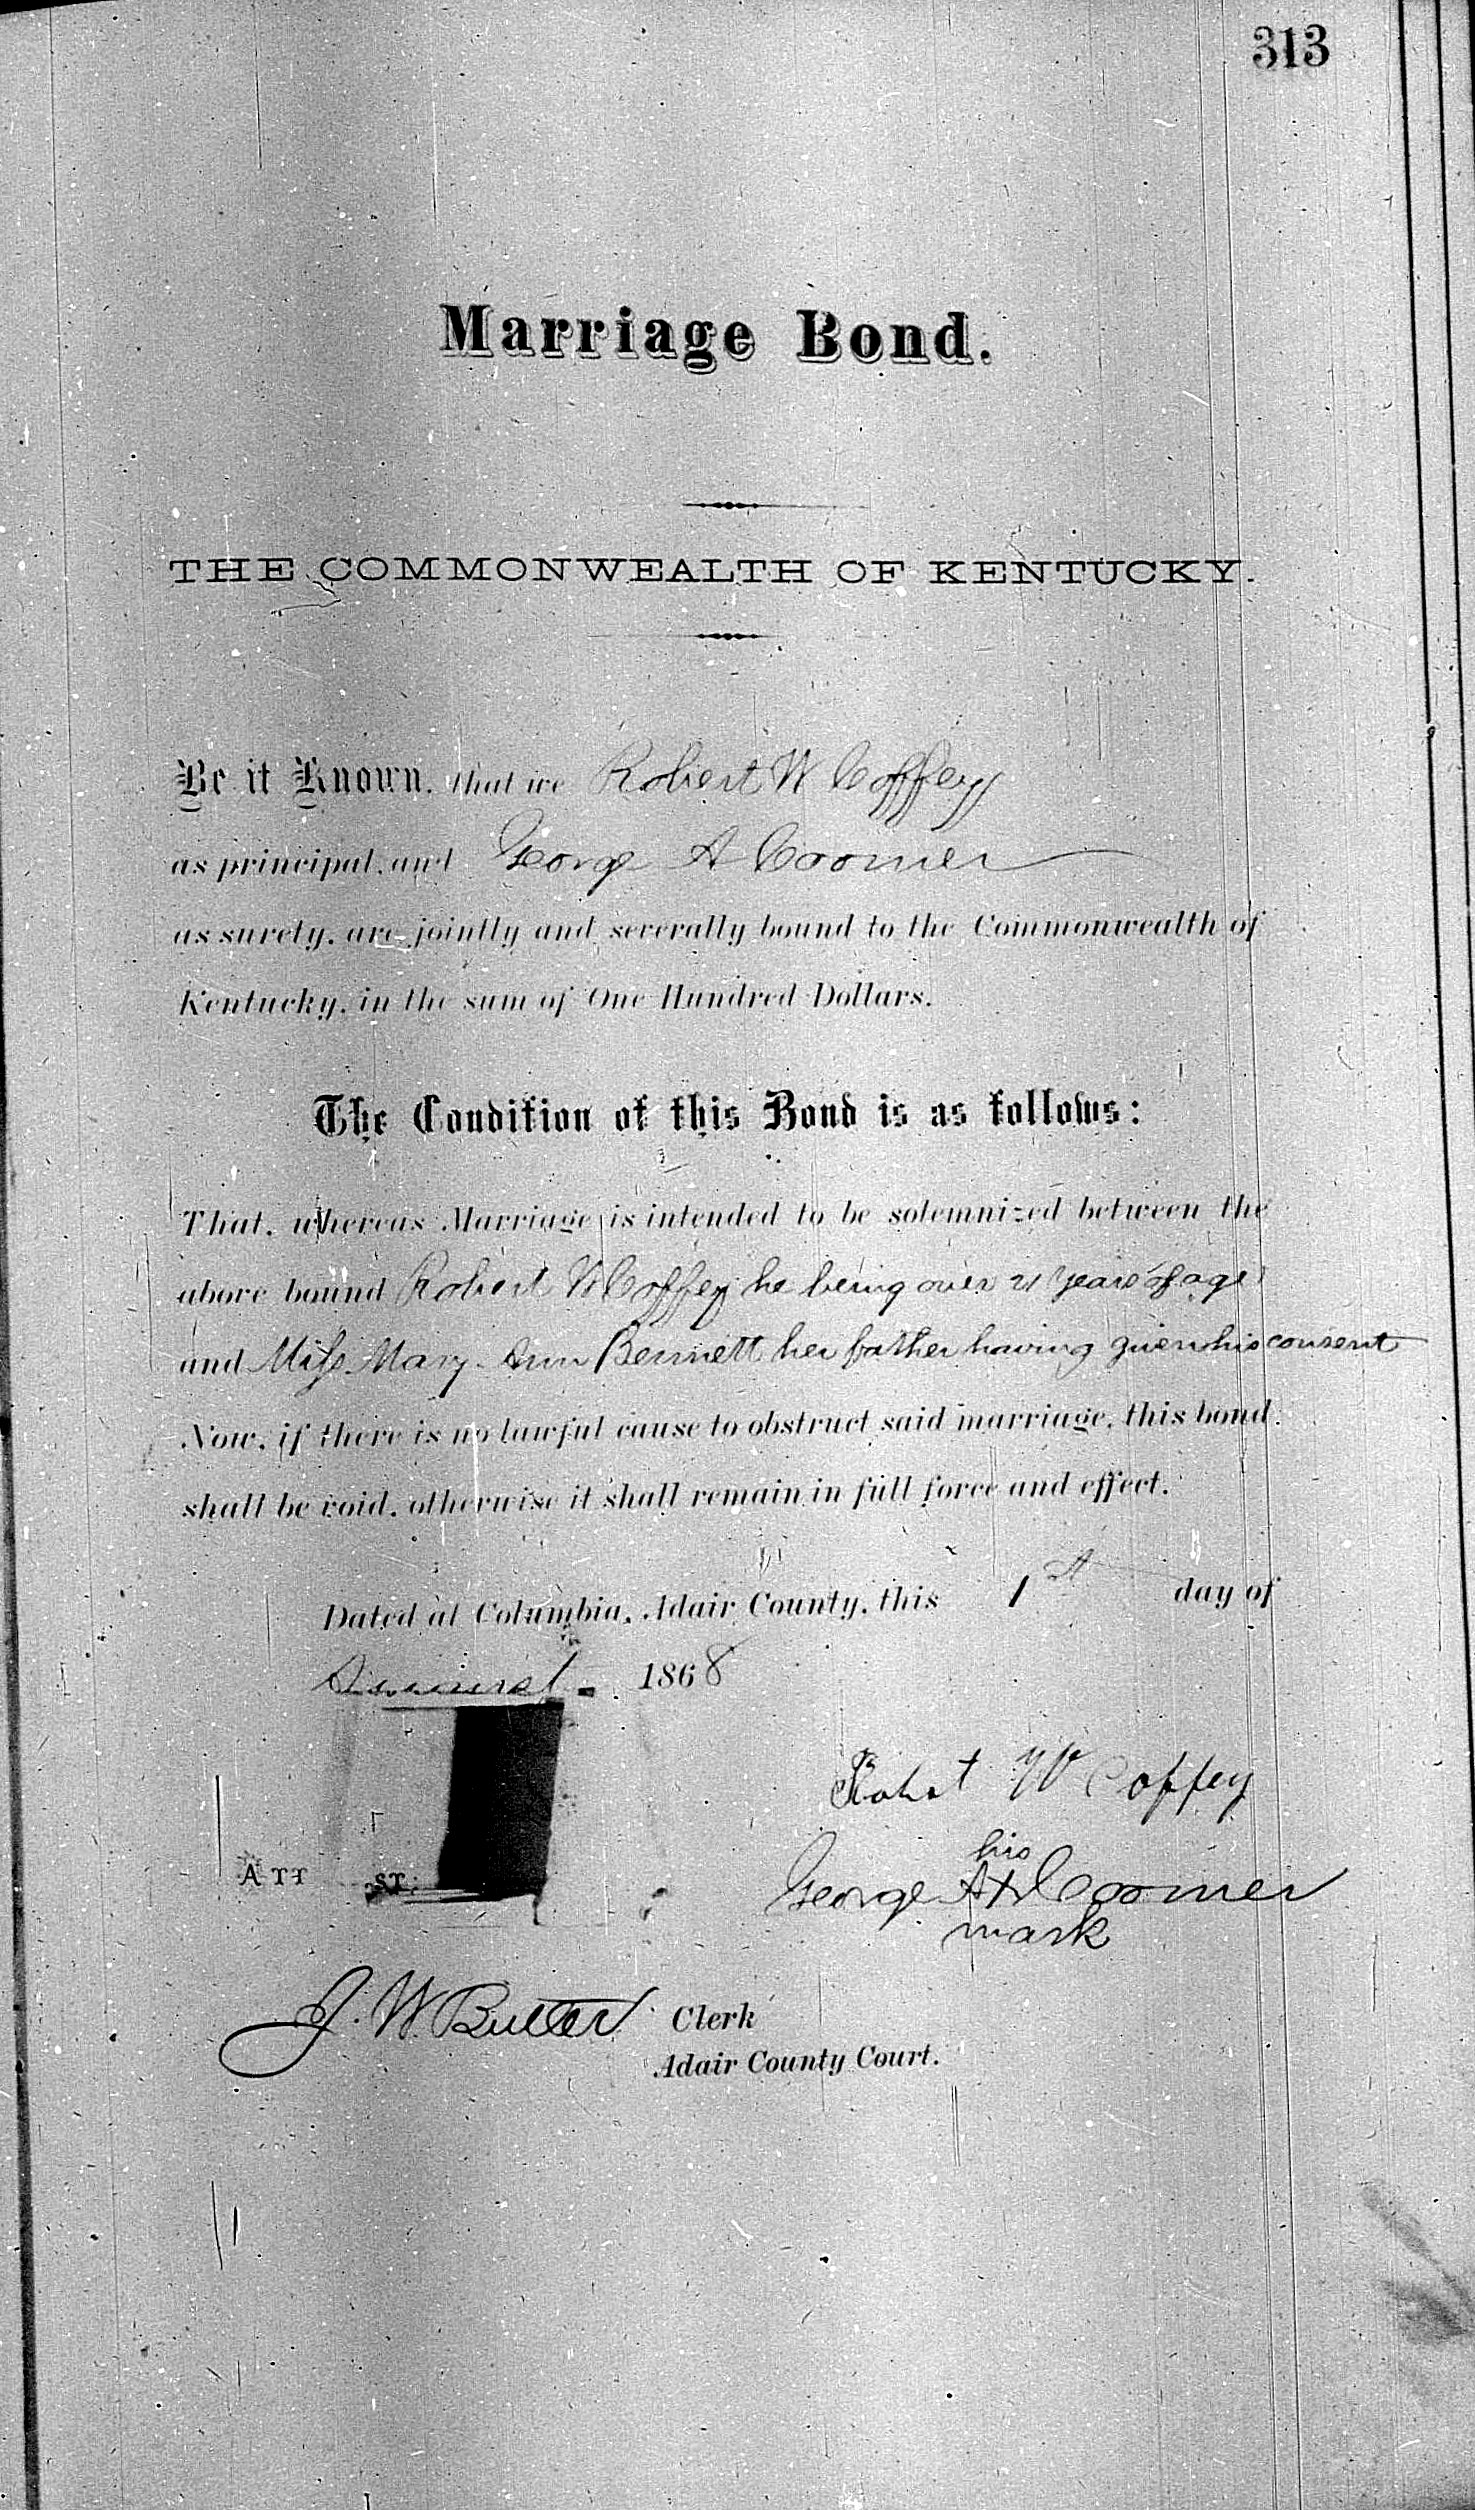 313
Marriage Bond.
THE COMMONWEALTH OF KENTUCKY.
Be it Known, that we Robert W Coffey
as principal, and George A Coomer
as surety, are jointly and severally bound to the Commonwealth of
Kentucky, in the sum of One Hundred Dollars.
The Condition of this Bond is as follows:
That, whereas Marriage is intended to be solemnized between the
above bound Robert W Coffey he being over 21 years of age
and Miss Mary Ann Bennett her father having given his consent
Now, if there is no lawful cause to obstruct said marriage, this bond
shall be void, otherwise it shall remain in full force and effect.
Dated at Columbia, Adair County, this 1st day of
August 1868
Robt W Coffey
his
ATT ST: George A X Coomer
mark
J. W. Butler Clerk
Adair County Court.